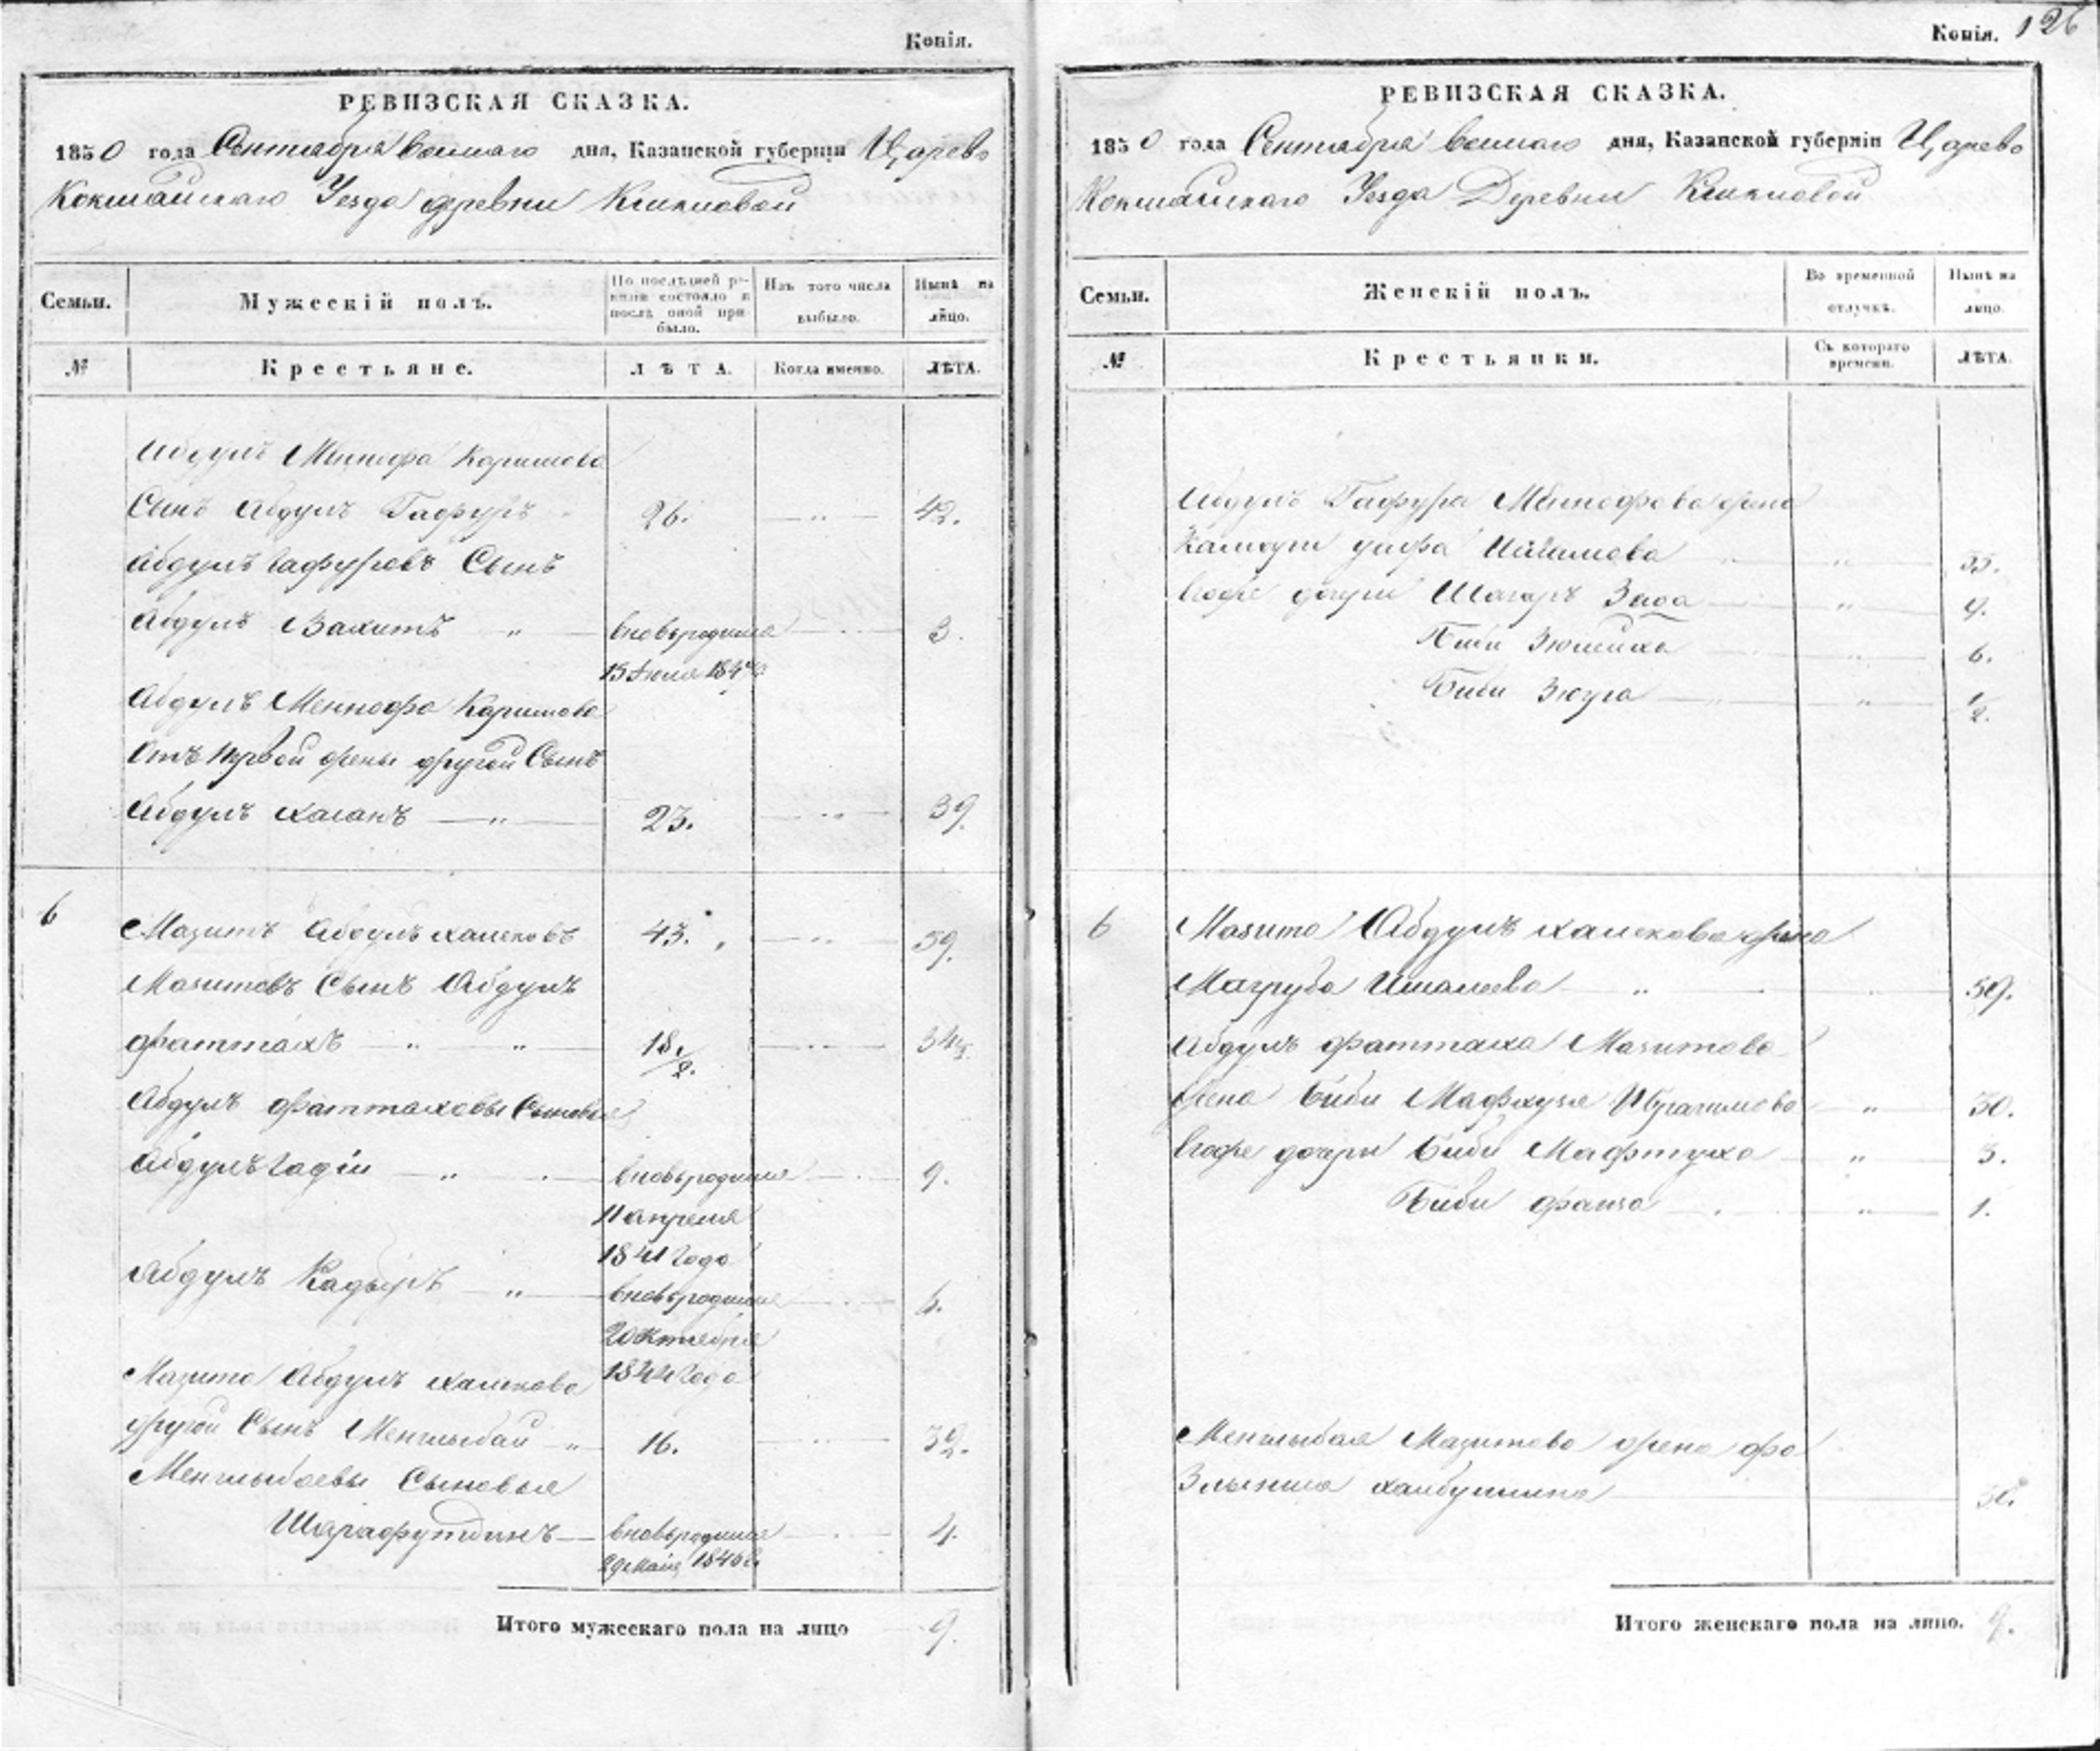 Копія.
РЕВИЗСКАЯ СКАЗКА.
1850 года Сентября дня, Казанской губерніи Царево
Кокшайскаго Уезда деревни
Семьи. Мужескій полъ. По послѣдней ревизіи состояло и послѣ оной прибыло. Изъ того числа выбыло. Нынѣ на лицо.
№ Крестьяне. ЛѢТА. Когда именно. ЛѢТА.
Абдулъ Каримова
Сынъ Абдулъ Гафуръ 26. 42.
Абдулъ Гафуровъ Сынъ
Абдулъ Вахитъ " вновьродился 3.
15 184
Абдулъ Меннофа Каримова
Отъ первой жены другой Сынъ
Абдулъ " 23. 39.
6 Мазитъ Абдулъ халековъ 43. 59.
Мазитовъ Сынъ Абдулъ
фаттахъ " " 18 1/2. 34 1/2.
Абдулъ фаттаховы Сыновья
Абдулъ Гадiи " вновьродился 9.
11 апреля
1841 Года
Абдулъ Кадыръ " вновьродился 6.
20 Октября
1844 Года
Мазита Абдулъ халекова
другой Сынъ Менглыбай " 16. 32.
Менглыбаевы Сыновья
Шарафутдинъ вновьродился 4.
29 Маiя 1846 г.
Итого мужескаго пола на лицо 9.
Копія. 126
РЕВИЗСКАЯ СКАЗКА.
1850 года Сентября дня, Казанской губерніи Царево
Кокшайскаго Уезда Деревни
Семьи. Женскій полъ. Во временной отлучкѣ. Нынѣ на лицо.
№ Крестьянки. Съ котораго времени. ЛѢТА.
Абдулъ Гафура Меннофова жена
" 35.
дочери Шагаръ " 9.
Биби 6.
Биби Зюгра " 1/2.
6 Мазита Абдулъ халекова жена
Магруба Ишалеева " 59.
Абдулъ фаттаха Мазитова
жена Биби Ибрагимова " 30.
дочери Биби Мафтуха " 3.
Биби фаиза " 1.
Менглыбая Мазитова жена фа
30.
Итого женскаго пола на лицо. 9.